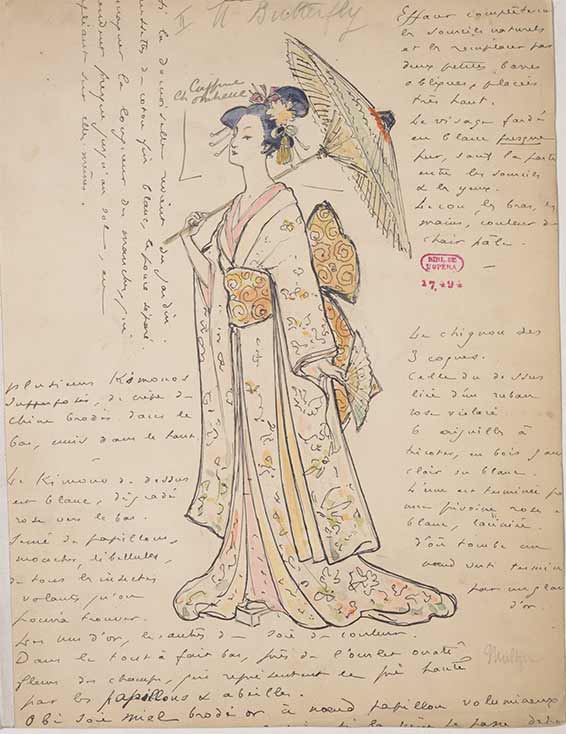 II
Butterfly
Coiffure
Chrysanthème
si la demoiselle revient du jardin
de coton gris blanc, le pouce séparé
la longueur des manches, qui
presque jusqu'au sol, en
sur elles-mêmes.
Effacer complètement
les sourcils naturels
et les remplacer par
deux petites barres
obliques, placées
très haut.
Le visage fardé
en blanc presque
pur, sauf la partie
entre les sourcils
& les yeux.
Le cou, les bras, les
mains, couleur de
chair pâle.
BIBL. DE
L'OPERA
27,494
Le chignon des
3 coques.
Celle du dessus
liée d'un ruban
rose
6 aiguilles à
tricoter, en bois
clair ou blanc.
L'une est terminée
une pivoine rose
blanc,
d'où tombe un
nœud vert terminé
par un gland
d'or.
plusieurs Kimonos
superposés, de crêpe de
Chine brodés dans le
bas, unis dans le haut
Le Kimono de dessus
est blanc, dégradé
rose vers le bas.
Semé de papillons,
mouches, libellules,
de tous les insectes
volants qu'on
pourra trouver.
Les uns d'or, les autres de soie de couleur.
Dans le tout à fait bas, près de l'ourlet ouaté
fleurs des champs, qui représentent le pré hanté
par les papillons & abeilles.
Obi soie miel brodé or à nœud papillon volumineux